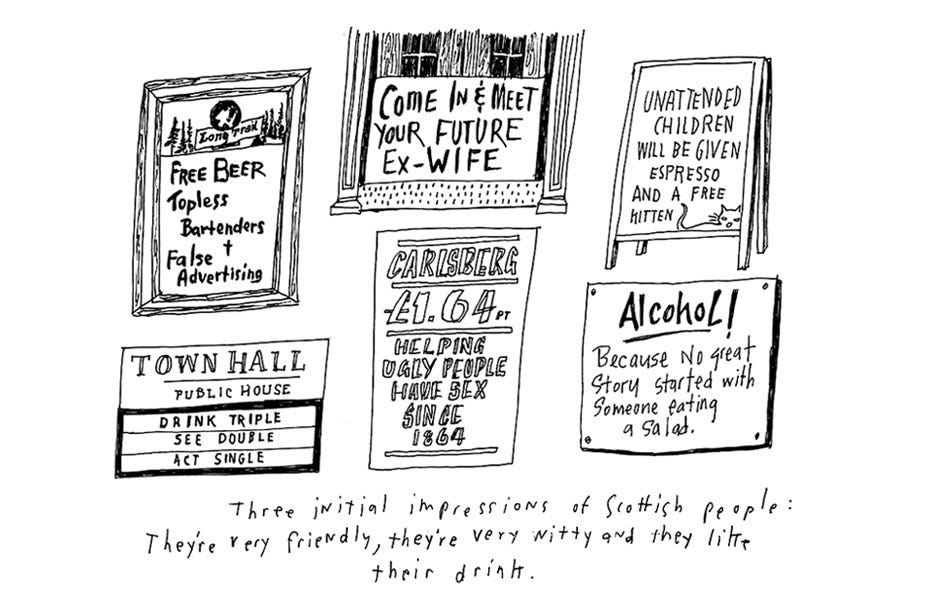 Long Trail
FREE BEER
Topless
Bartenders
+
False
Advertising
COME IN & MEET
YOUR FUTURE
EX-WIFE
UNATTENDED
CHILDREN
WILL BE GIVEN
ESPRESSO
AND A FREE
KITTEN
TOWN HALL
PUBLIC HOUSE
DRINK TRIPLE
SEE DOUBLE
ACT SINGLE
CARLSBERG
£1.64 PT
HELPING
UGLY PEOPLE
HAVE SEX
SINCE
1864
Alcohol!
Because No great
Story started with
Someone eating
a Salad.
Three initial impressions of Scottish people:
They're very friendly, they're very witty and they like
their drink.